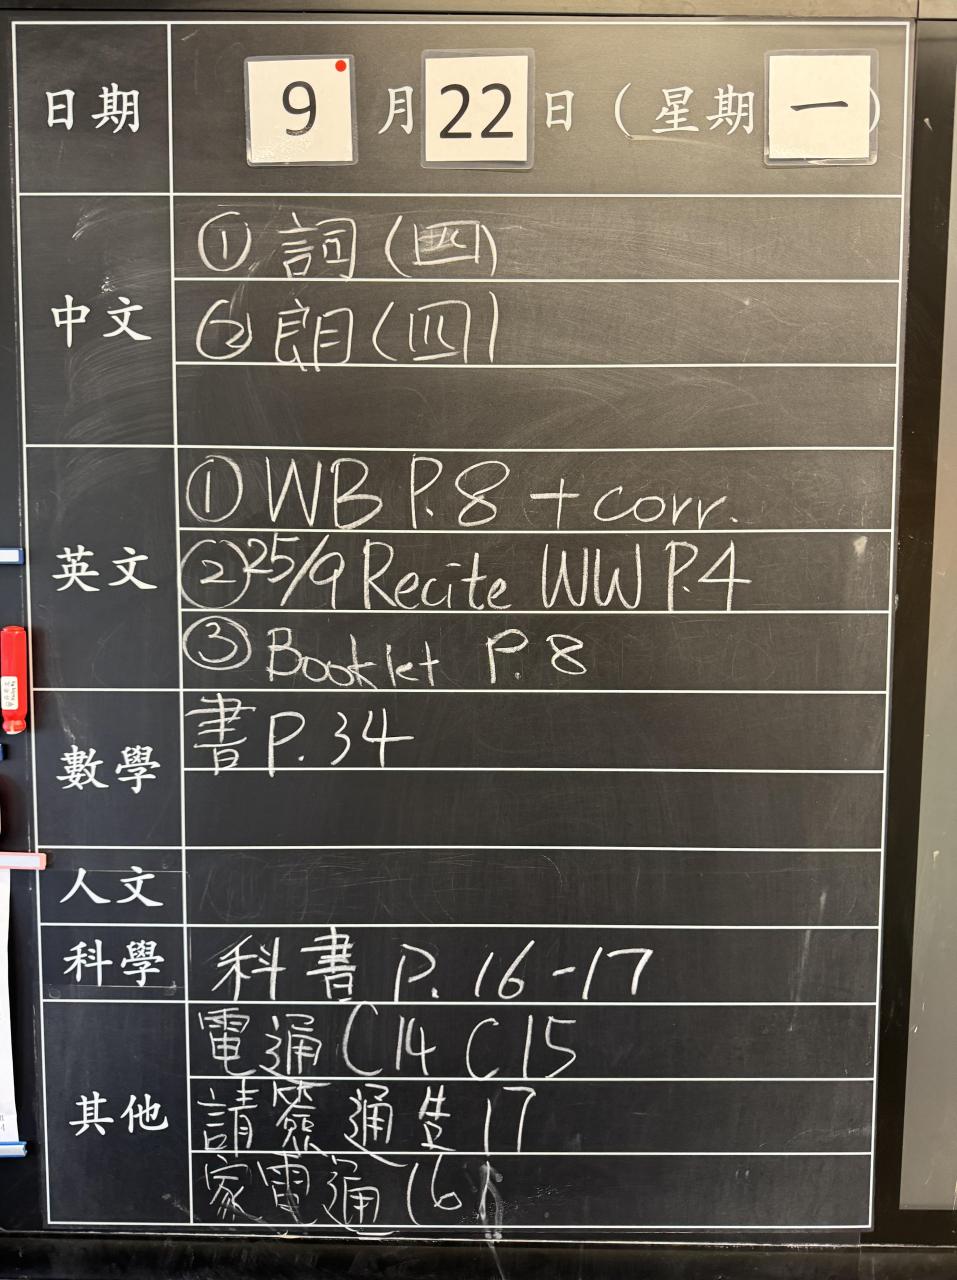 日期 9 月 22 日 (星期 一)
中文
① 詞 (四)
② 朗 (四)
英文
① WB P.8 + corr.
② 25/9 Recite WW P.4
③ Booklet P.8
數學
書 P.34
人文
科學
科書 P. 16-17
其他
電通 C14 C15
請簽通告 17
家電通 16